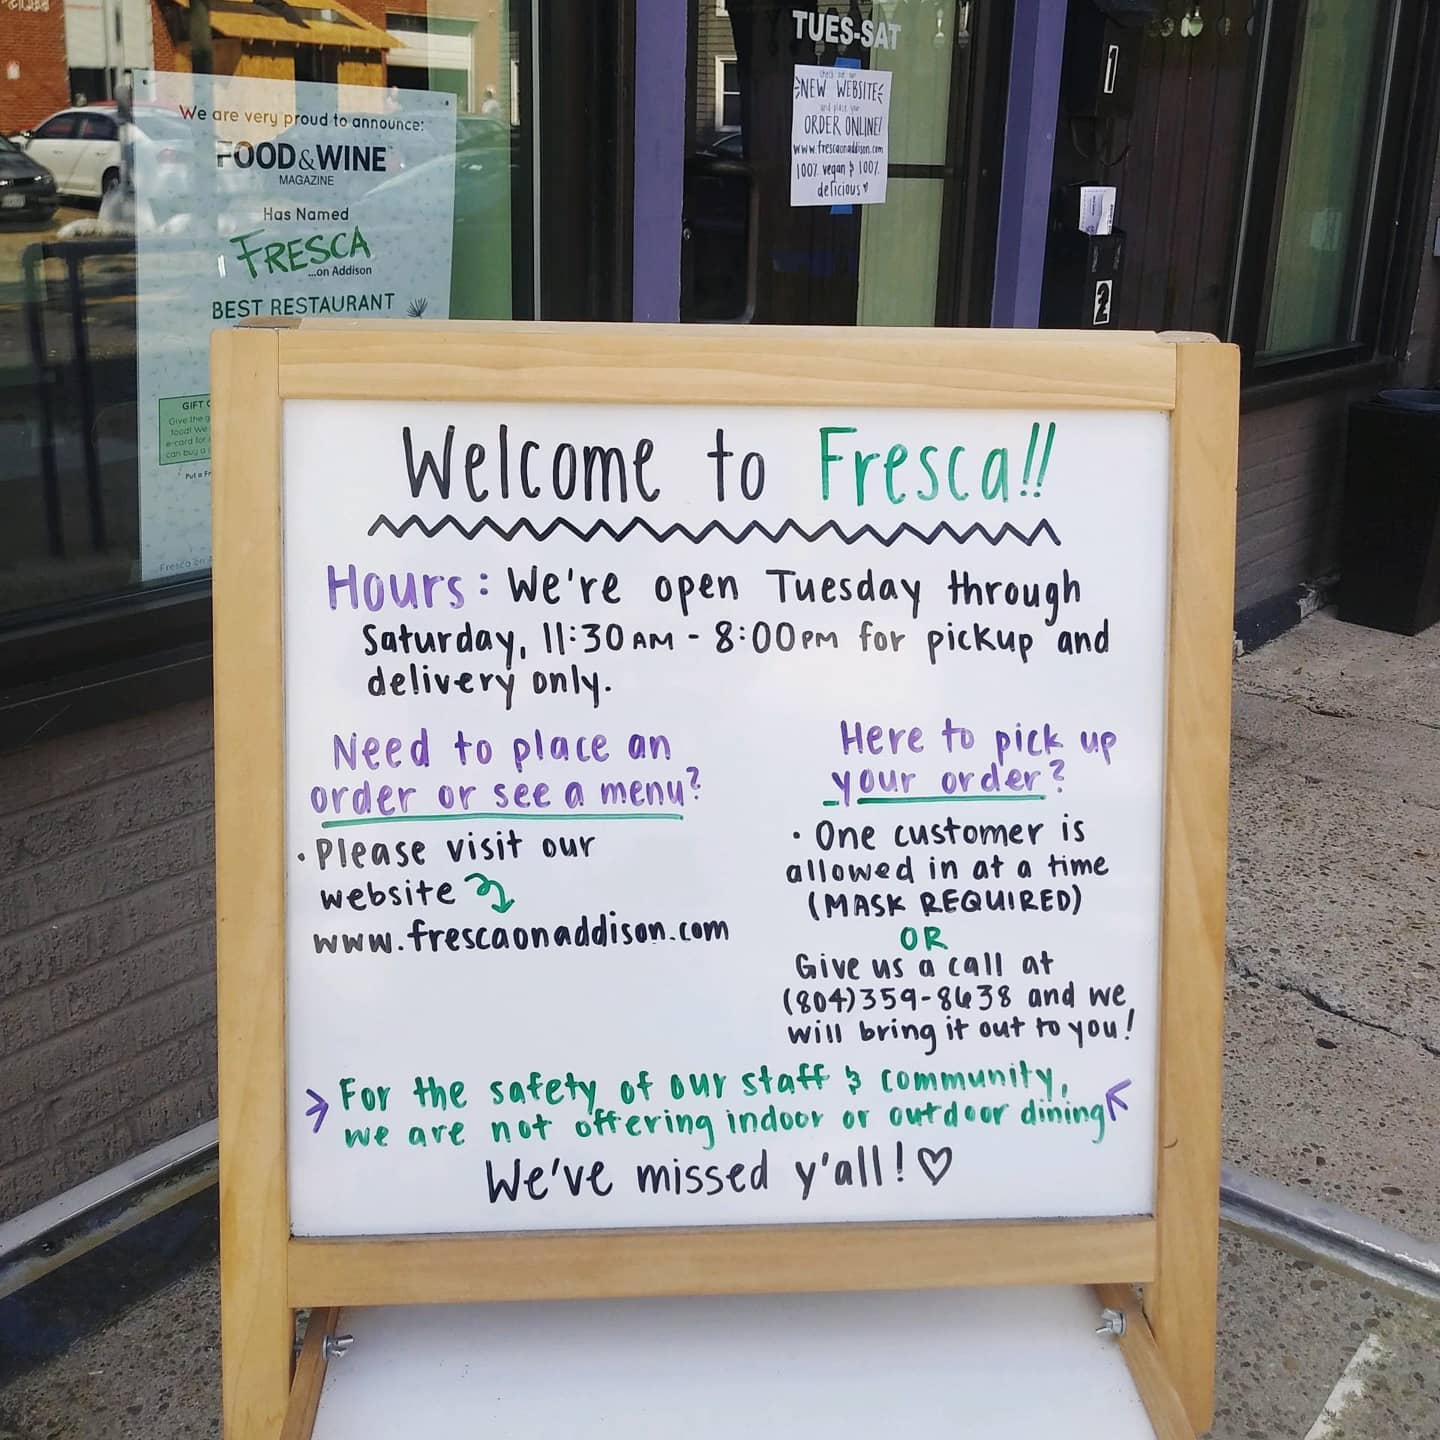 We are very proud to announce:
FOOD&WINE
MAGAZINE
Has Named
FRESCA
...on Addison
BEST RESTAURANT
GIFT
Give the
food! We
e-card for
can buy a
Put a
Fresca on
TUES-SAT
check out our
NEW WEBSITE
and place your
ORDER ONLINE!
www.frescaonaddison.com
100% vegan & 100%
delicious
1
2
Welcome to Fresca!!
Hours: We're open Tuesday through
Saturday, 11:30AM - 8:00PM for pickup and
delivery only.
Need to place an
order or see a menu?
• Please visit our
website
www.frescaonaddison.com
Here to pick up
your order?
• One customer is
allowed in at a time
(MASK REQUIRED)
OR
Give us a call at
(804)359-8638 and we
will bring it out to you!
For the safety of our staff & community,
we are not offering indoor or outdoor dining
We've missed y'all! ♡